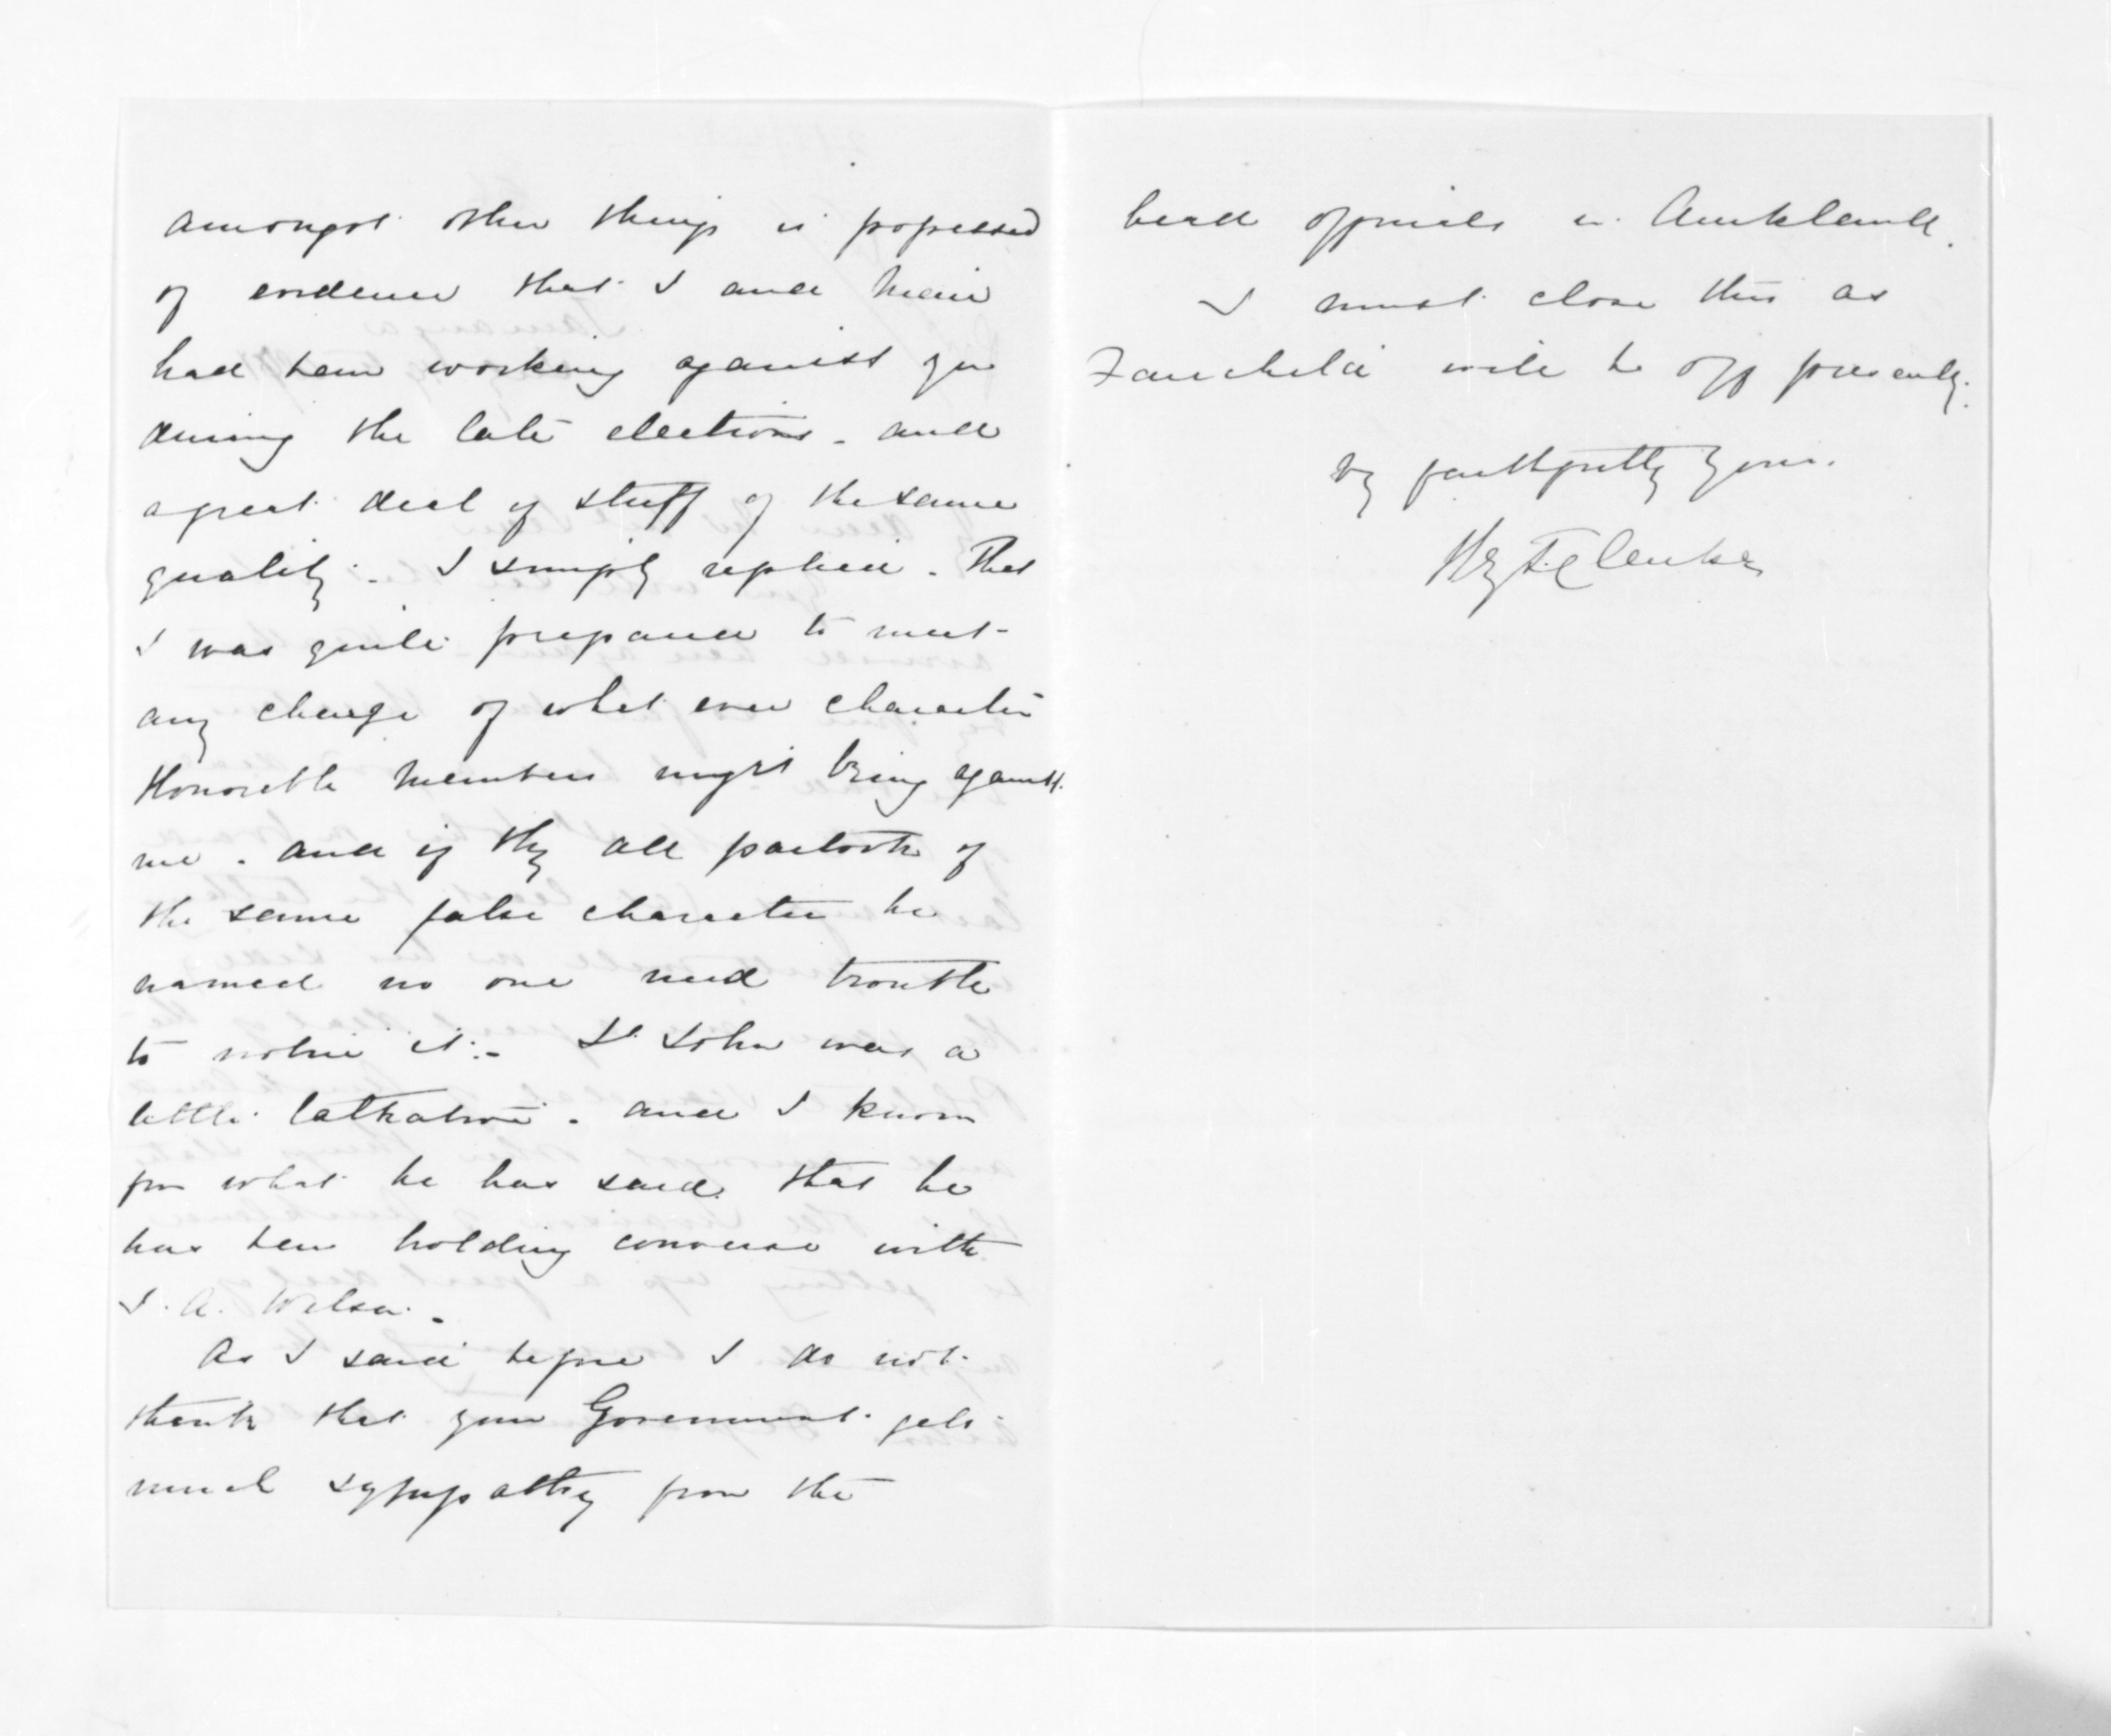 amongst other things is possessed
of evidence that I and Mair
had been working against you
during the late elections - and
a great deal of stuff of the same
quality - I simply replied - That
I was quite prepared to meet
any charge of what ever character
Honorable Members might bring against
me - and if they all partook of
the same false character he
named no one need trouble
to notice it. - St John was a
little talkative - and I know
from what he has said that he
has been holding converse with
J. A. Wilson. -
As I said before I do not
think that your Government gets
much sympathy from the
head officials in Auckland.
I must close this as
Fairchild will be off presently.
Vy faithfully Yours.
Hy T. Clarke